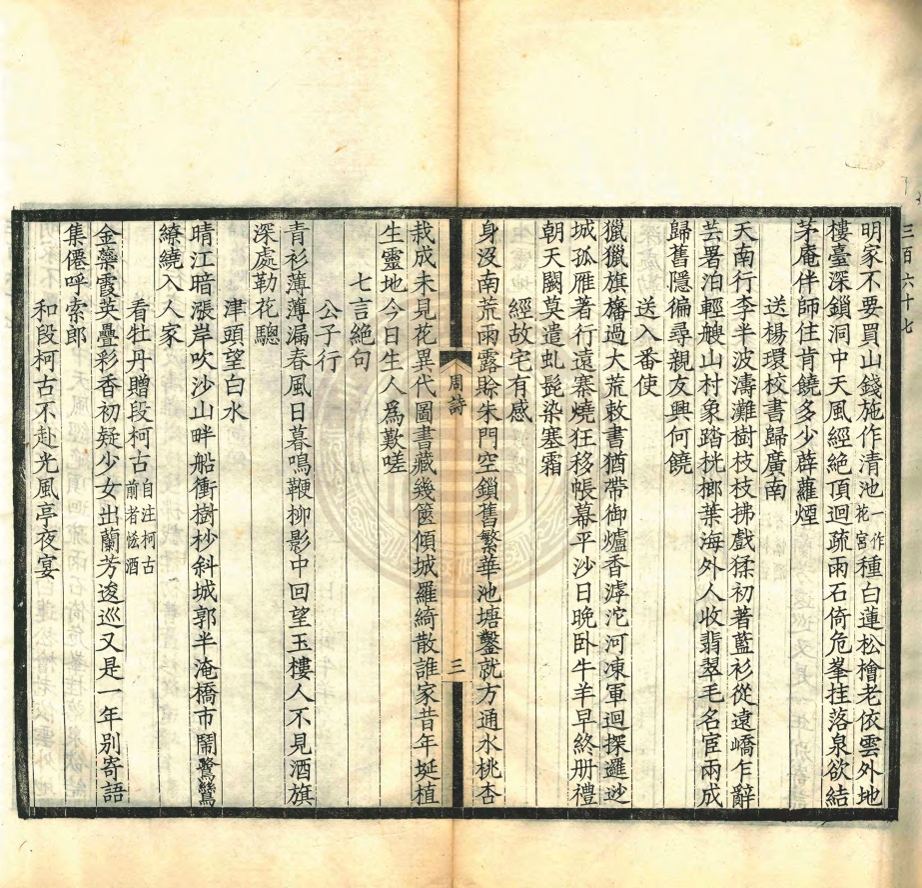 三百六十七
明家不要買山錢施作清池一作花宮種白蓮松檜老依雲外地
樓臺深鎖洞中天風經絕頂迴疏雨石倚危峯挂落泉欲結
茅庵伴師住肯饒多少薜蘿煙
送楊環校書歸廣南
天南行李半波濤灘樹枝枝拂戲猱初著藍衫從遠嶠乍辭
芸署泊輕艘山村象踏桄榔葉海外人收翡翠毛名宦兩成
歸舊隱徧尋親友興何饒
送入番使
獵獵旗旛過大荒敕書猶帶御爐香滹沱河凍軍迴探邏逤
城孤雁著行遠寨燒狂移帳幕平沙日晚卧牛羊早終册禮
朝天闕莫遣虬髭染塞霜
經故宅有感
身沒南荒雨露賒朱門空鎖舊繁華池塘鑿就方通水桃杏
周詩
三
栽成未見花異代圖書藏幾篋傾城羅綺散誰家昔年埏植
生靈地今日生人爲歎嗟
七言絕句
公子行
青衫薄薄漏春風日暮鳴鞭柳影中回望玉樓人不見酒旗
深處勒花驄
津頭望白水
晴江暗漲岸吹沙山畔船衝樹杪斜城郭半淹橋市鬧鷺鷥
繚繞入人家
看牡丹贈段柯古自注柯古前者惉酒
金蘂霞英疊彩香初疑少女出蘭芳逡巡又是一年別寄語
集僊呼索郎
和段柯古不赴光風亭夜宴